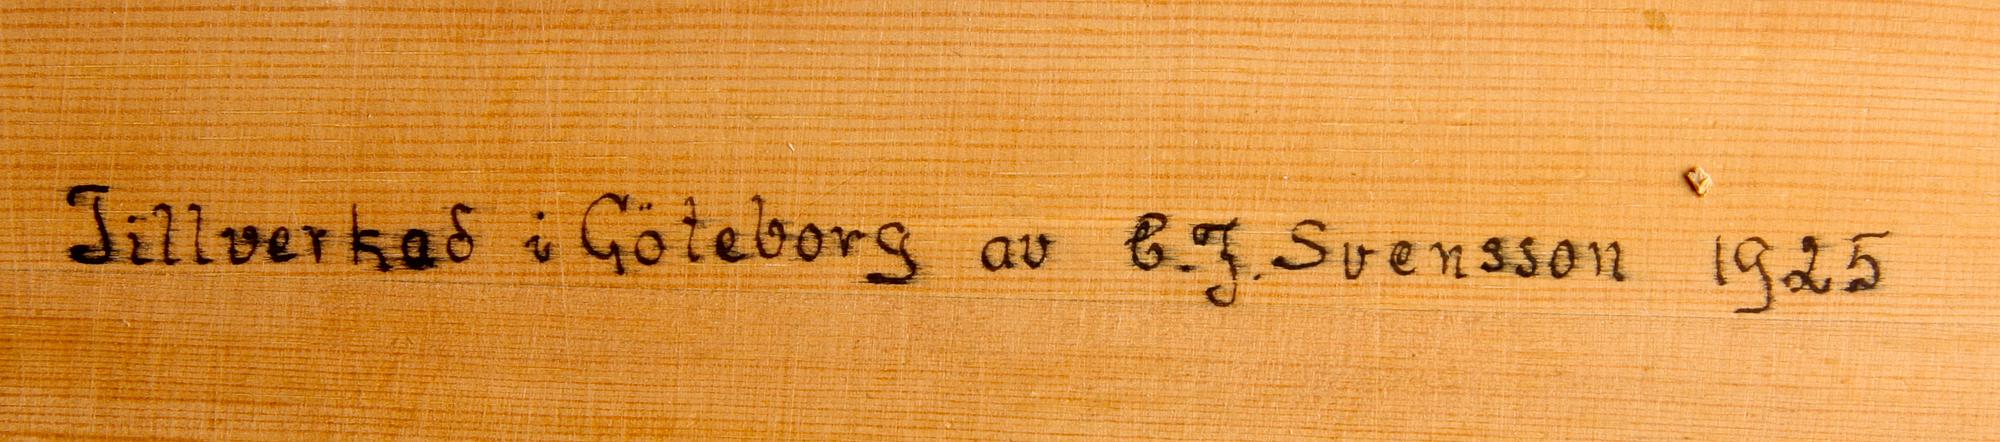 Tillverkad i Göteborg av C.J. Svensson 1925